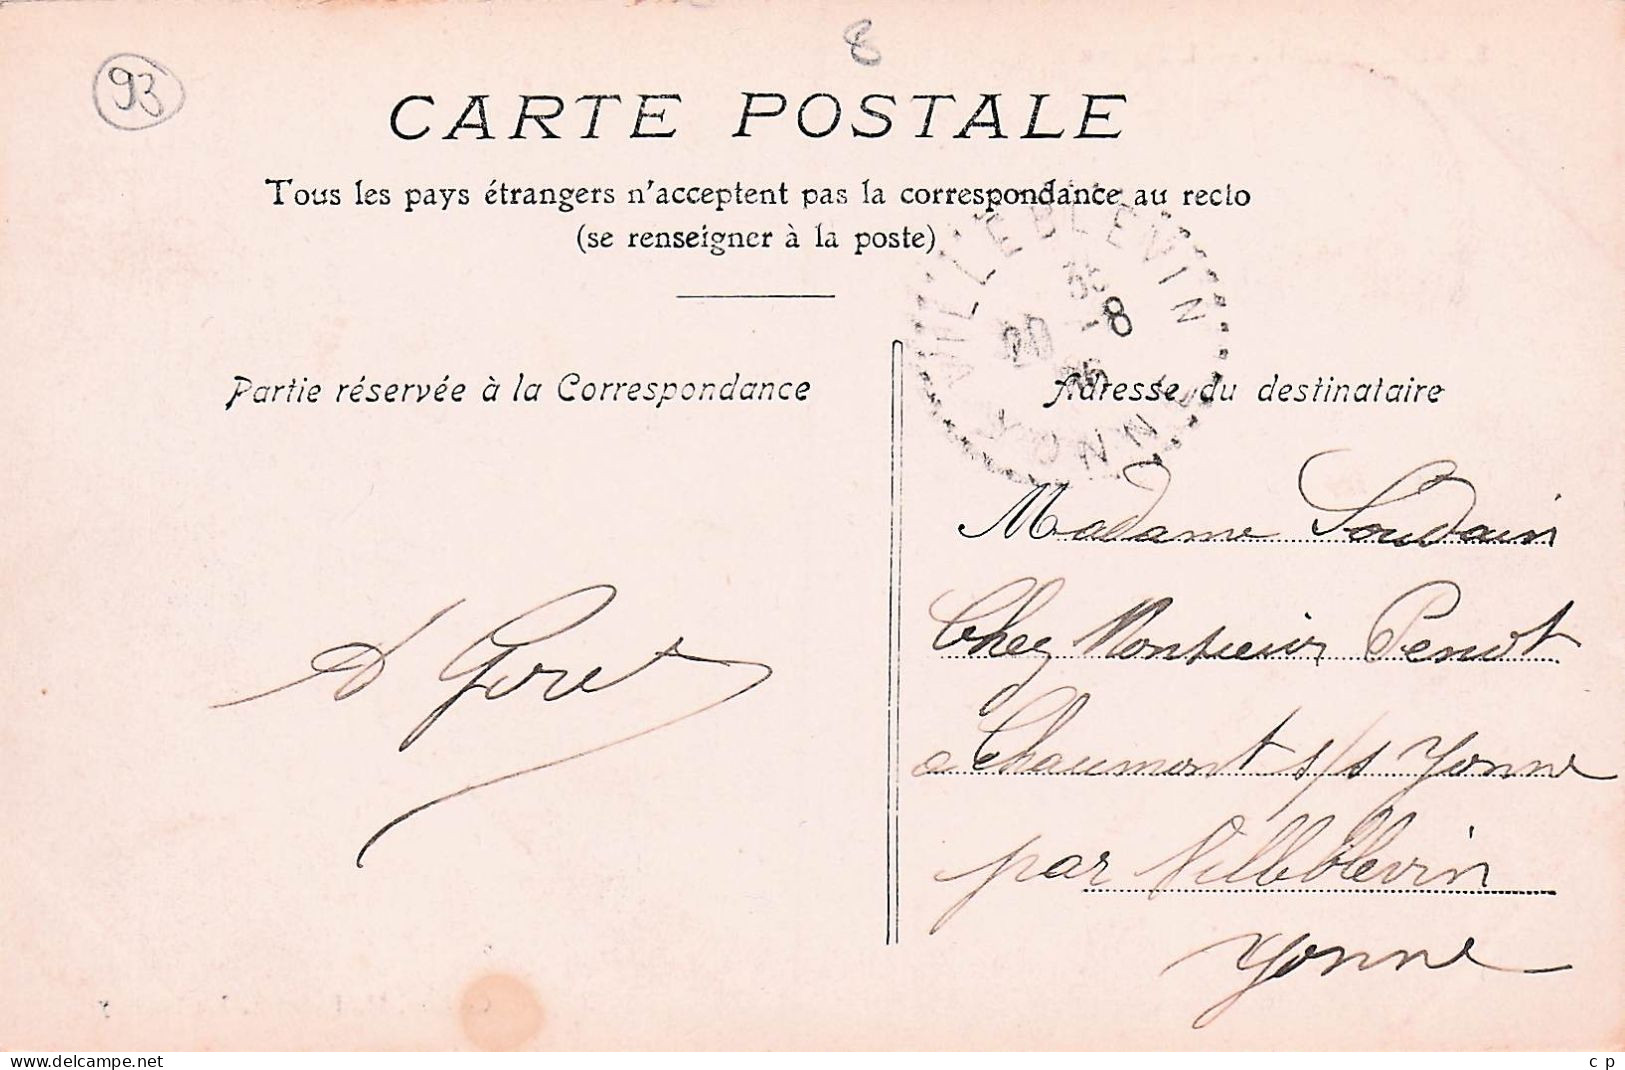 93
8
CARTE POSTALE
Tous les pays étrangers n'acceptent pas la correspondance au recto
(se renseigner à la poste)
VILLEBLEVIN
35
20 -8
YONNE
Partie réservée à la Correspondance
Adresse du destinataire
Madame Soudain
Chez Monsieur Penot
a Chaumont s/s Yonne
par Villeblevin
Yonne
www.delcampe.net
c p